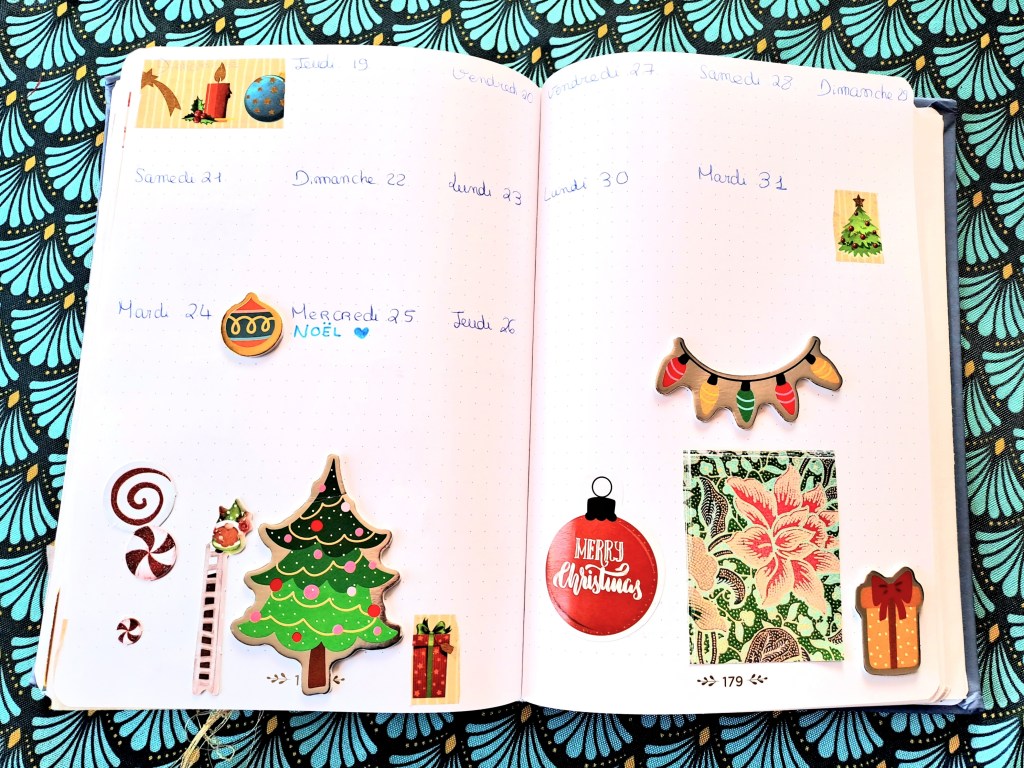 Jeudi 19
Vendredi 20
Samedi 21
Dimanche 22
Lundi 23
Mardi 24
Mercredi 25
NOËL
Jeudi 26
Vendredi 27
Samedi 28
Dimanche 29
Lundi 30
Mardi 31
MERRY
Christmas
179